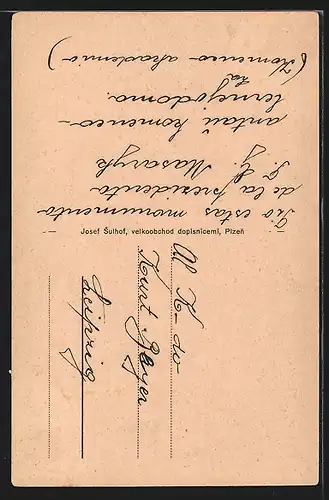 Tio estas monumento
de la prezidento
T. G. Masaryk
antaŭ komenco-
lernejodomo.
(Komenco-akademio)
Josef Šulhof, velkoobchod dopisnicemi, Plzeň
Al K-do
Kurt Beyer
Leipzig